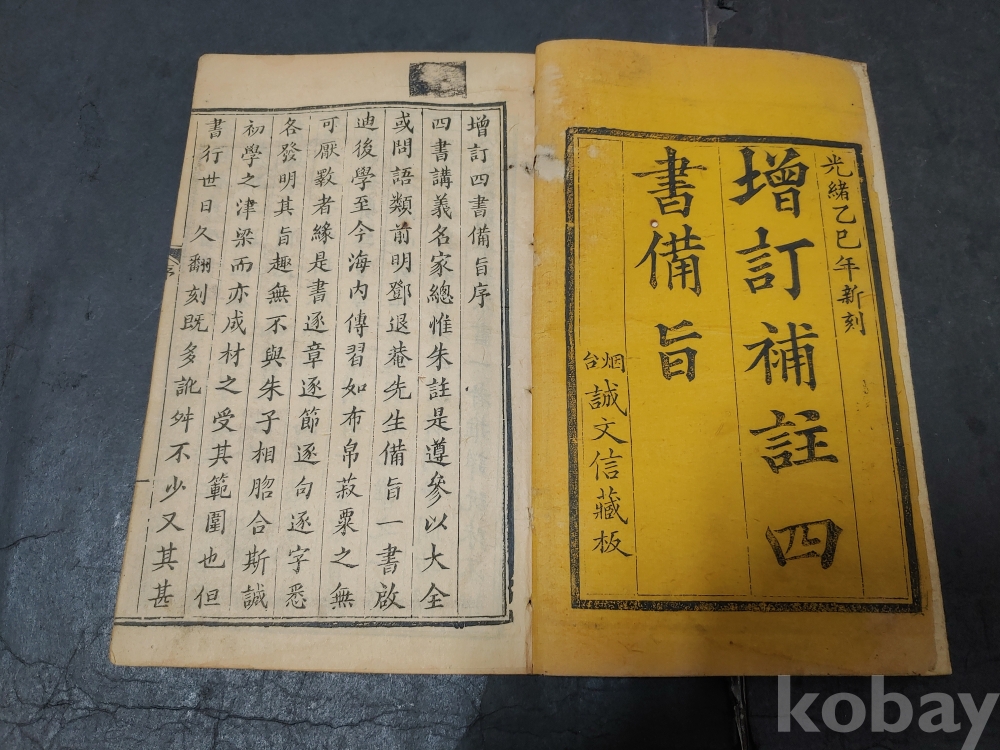 光緒乙巳年新刻
增訂補註四
書備旨
烟台誠文信藏板
增訂四書備旨序
四書講義名家總惟朱註是遵參以大全
或問語類前明鄧退菴先生備旨一書啟
迪後學至今海内傳習如布帛菽粟之無
可厭斁者緣是書逐章逐節逐句逐字悉
各發明其旨趣無不與朱子相脗合斯誠
初學之津梁而亦成材之受其範圍也但
書行世日久翻刻既多訛舛不少又其甚
kobay